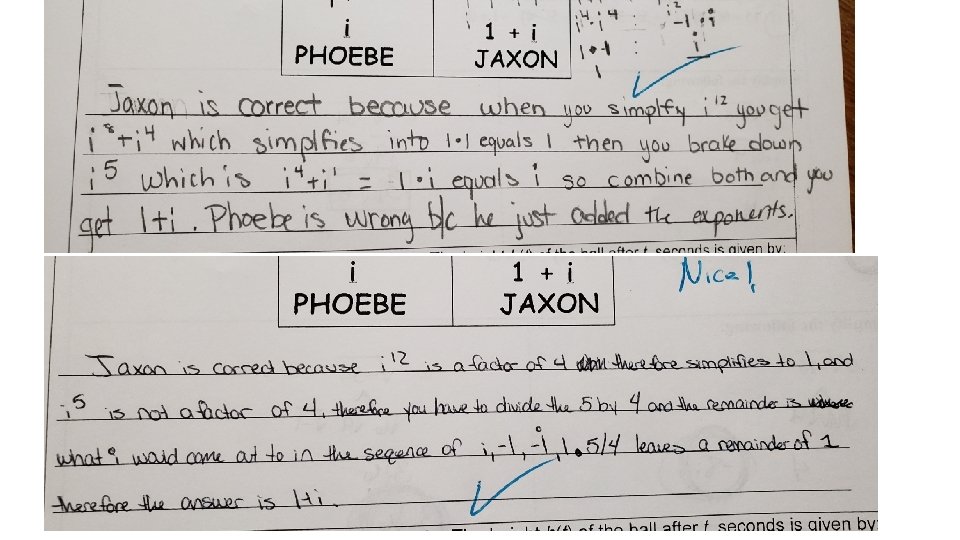 i
PHOEBE
1 + i
JAXON
i⁴·i⁴
1·1
1
i²
-1·i
i
Jaxon is correct because when you simplfy i¹² you get
i⁸+i⁴ which simplfies into 1·1 equals 1 then you brake down
i⁵ which is i⁴+i¹ = 1·i equals i so combine both and you
get 1+i. Phoebe is wrong b/c he just added the exponents.
ball after t seconds is given by:
i
PHOEBE
1 + i
JAXON
Nice!
Jaxon is correct because i¹² is a factor of 4 therefore simplifies to 1, and
i⁵ is not a factor of 4, therefore you have to divide the 5 by 4 and the remainder is
what i waid come out to in the seqence of i,-1,-i,1. 5/4 leaves a remainder of 1
therefore the answer is 1+i.
of the ball after t seconds is given by